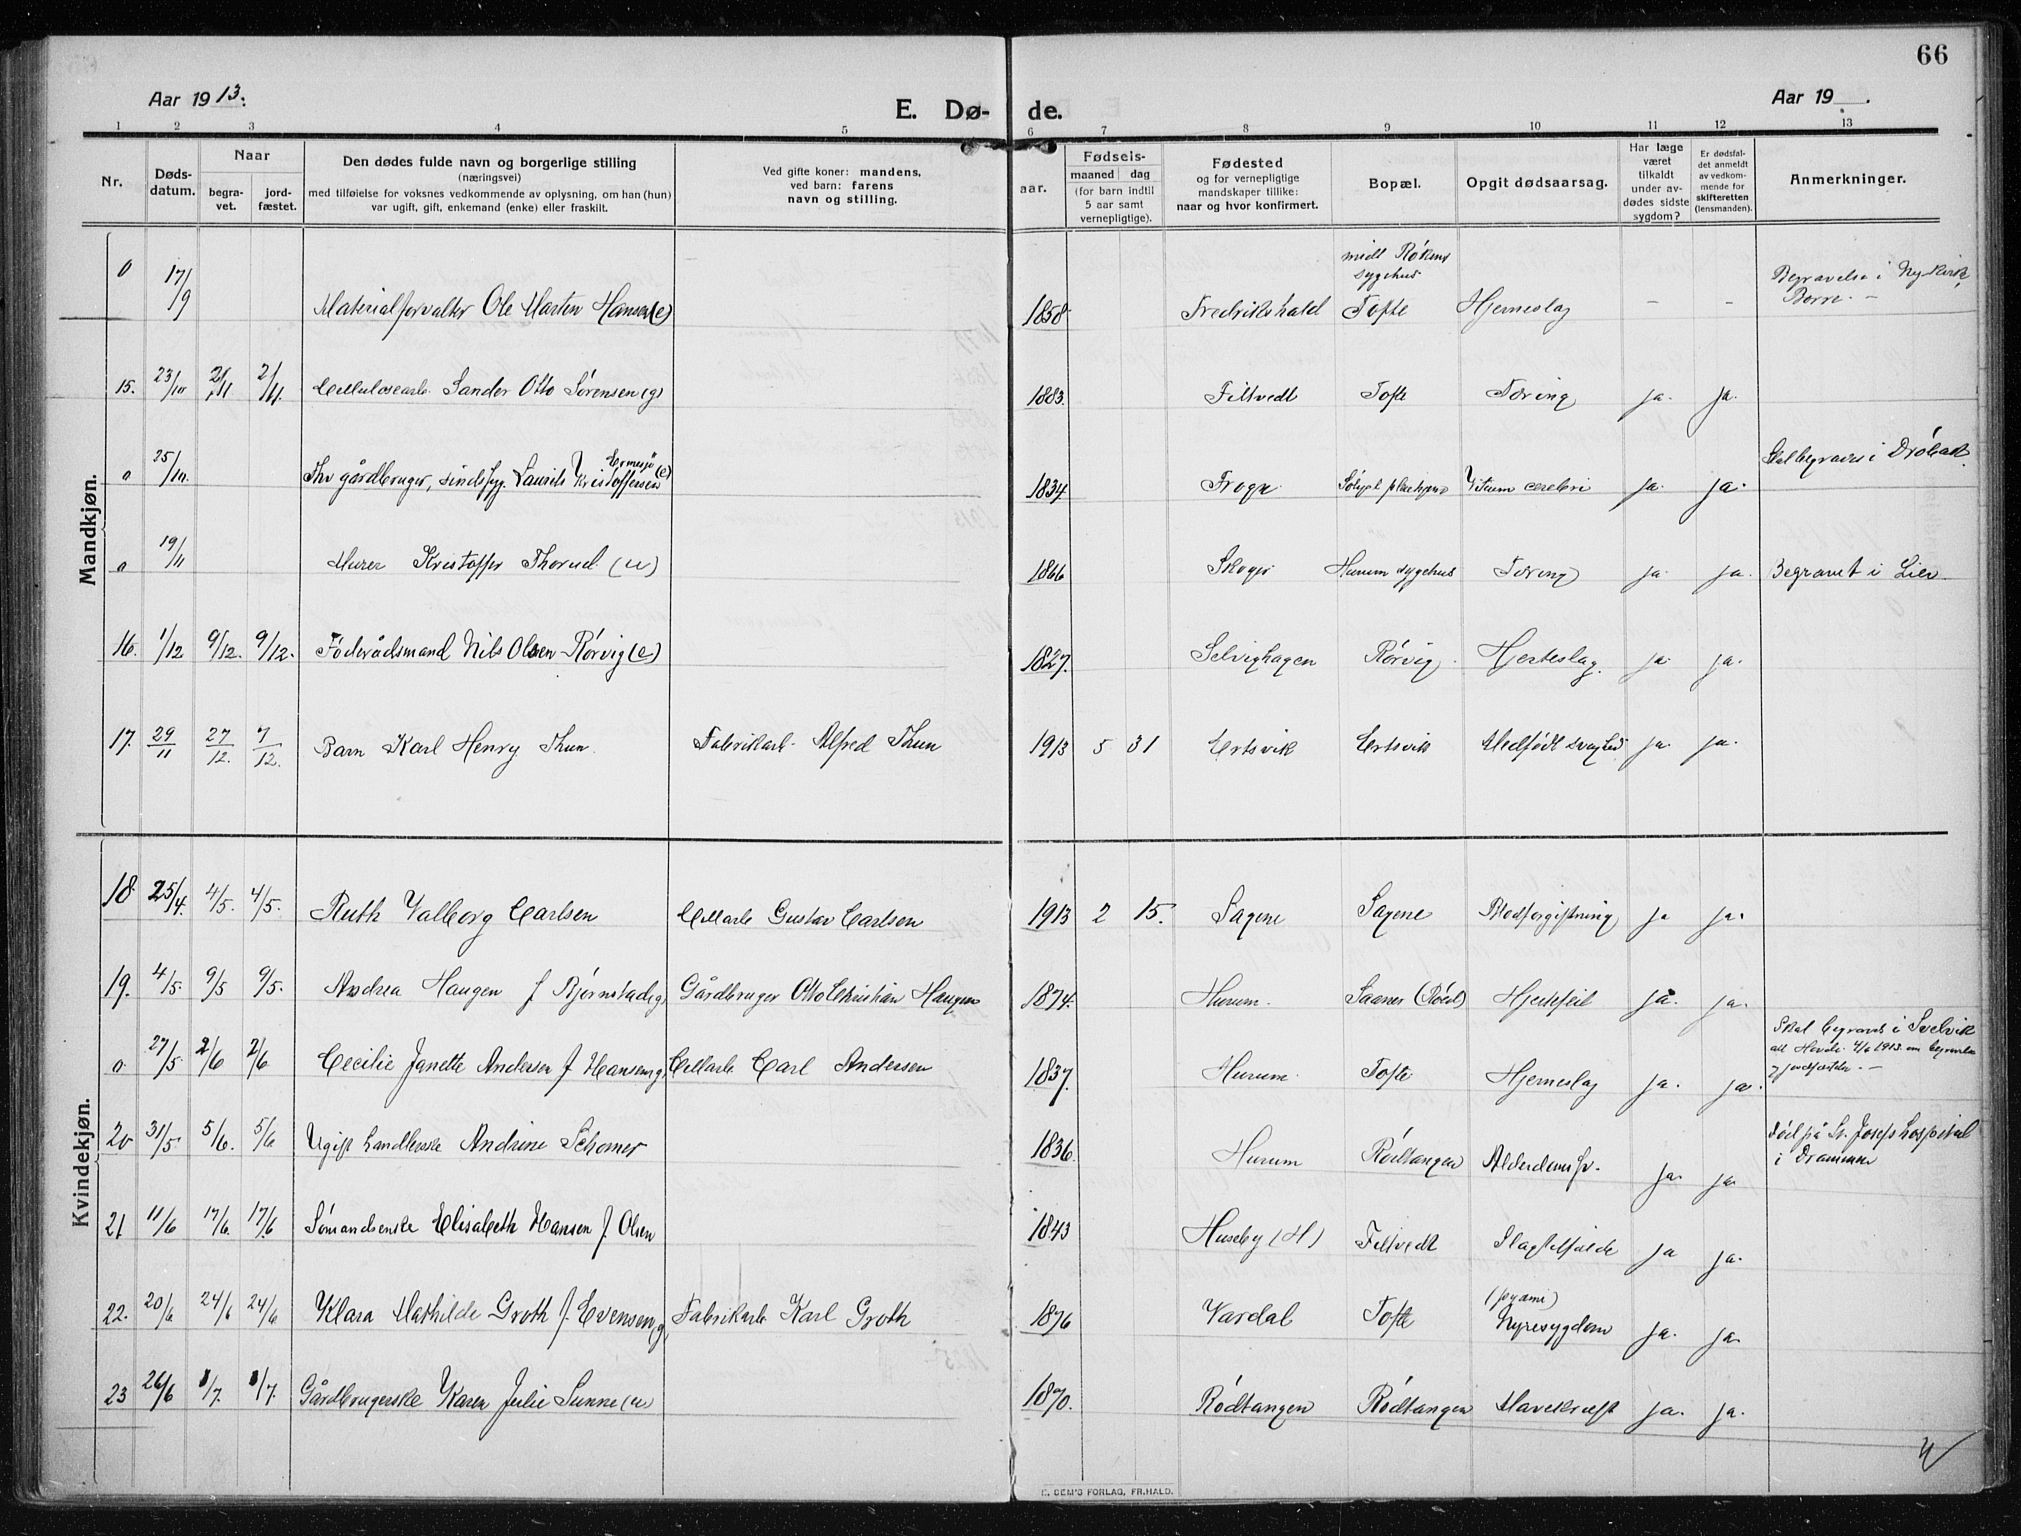 66
Aar 1913.
E. Dø- de.
Aar 19 .
1 2 3 4 5 6 7 8 9 10 11 12 13
Nr. Døds-datum. Naar begra-vet. jord-fæstet. Den dødes fulde navn og borgerlige stilling (næringsvei) med tilføielse for voksnes vedkommende av oplysning, om han (hun) var ugift, gift, enkemand (enke) eller fraskilt. Ved gifte koner: mandens, ved barn: farens navn og stilling. Fødsels- aar. maaned dag (for barn indtil 5 aar samt vernepligtige). Fødested og for vernepligtige mandskaper tillike: naar og hvor konfirmert. Bopæl. Opgit dødsaarsag. Har læge været tilkaldt under av-dødes sidste sygdom? Er dødsfal-det anmeldt av vedkom-mende for skifteretten (lensmanden). Anmerkninger.
Mandkjøn.
0 17/9 Materialforvalter Ole Marten Hansen (e) 1858. Fredrikshald midl Røkens sygehus Tofte Hjerneslag – – Begravelse i Nykirke, Borre. –
15. 23/10 2/11 2/11. Cellulosearb. Sander Otto Sørensen (g) 1883. Filtvedt Tofte Tæring ja. ja.
0 25/10. Fhv gårdbruger, sindssyg. Laurits Kristoffersen Ermesjø (e) 1834. Frogn Vitium cerebri ja. ja. Skal begraves i Drøbak.
0 19/11 Murer Kristoffer Thorud (u) 1866 Skoger Hurum sygehus Tæring ja. ja. Begravet i Lier
16. 1/12 9/12. 9/12. Føderådsmand Nils Olsen Rørvig (e) 1827. Selvighagen Rørvig. Hjerteslag. ja. ja.
17. 29/11 27/12. 7/12. Barn Karl Henry Thun. Fabrikarb. Alfred Thun 1913 5 31 Ertsvik Ertsvik Medfødt svaghed ja. ja.
Kvindekjøn.
18 25/4. 4/5. 4/5. Ruth Valborg Carlsen Cellarb Gustav Carlsen 1913 2 15. Sagene Sagene Blodforgiftning ja ja.
19. 4/5. 9/5 9/5. Andrea Haugen f Bjørnstad g) Gårdbruger Otto Christian Haugen 1874. Hurum. Saaner (Røed) Hjertefeil ja. ja.
0. 27/5 2/6 2/6 Cecilie Janette Andersen f Hansen g) Cellarb Carl Andersen 1837. Hurum. Tofte Hjerneslag ja. ja. Skal begraves i Svelvik att Hovde 4/6 1913 om begravelse og jordfæstelse. –
20 31/5. 5/6. 5/6 Ugift Andrine Schomer 1836. Hurum Rødtangen Alderdomssv. ja. ja. død på St. Josefs hospital i Drammen
21 11/6 17/6. 17/6 Sømandsenke Elisabeth Hansen f. Olsen 1843 Huseby (H) Filtvedt Slagtilfælde ja ja.
22. 20/6 24/6 24/6 Klara Mathilde Groth f. Evensen g) Fabrikarb Karl Groth 1876 Vardal Tofte (pyämi) Nyresygdom ja. ja.
23 26/6 8/7. 8/7. Gårdbrugerske Karen Julie Sunne (u) 1870. Rødtangen Rødtangen Mavekræft ja. ja.
E. SEM'S FORLAG, FR.HALD.